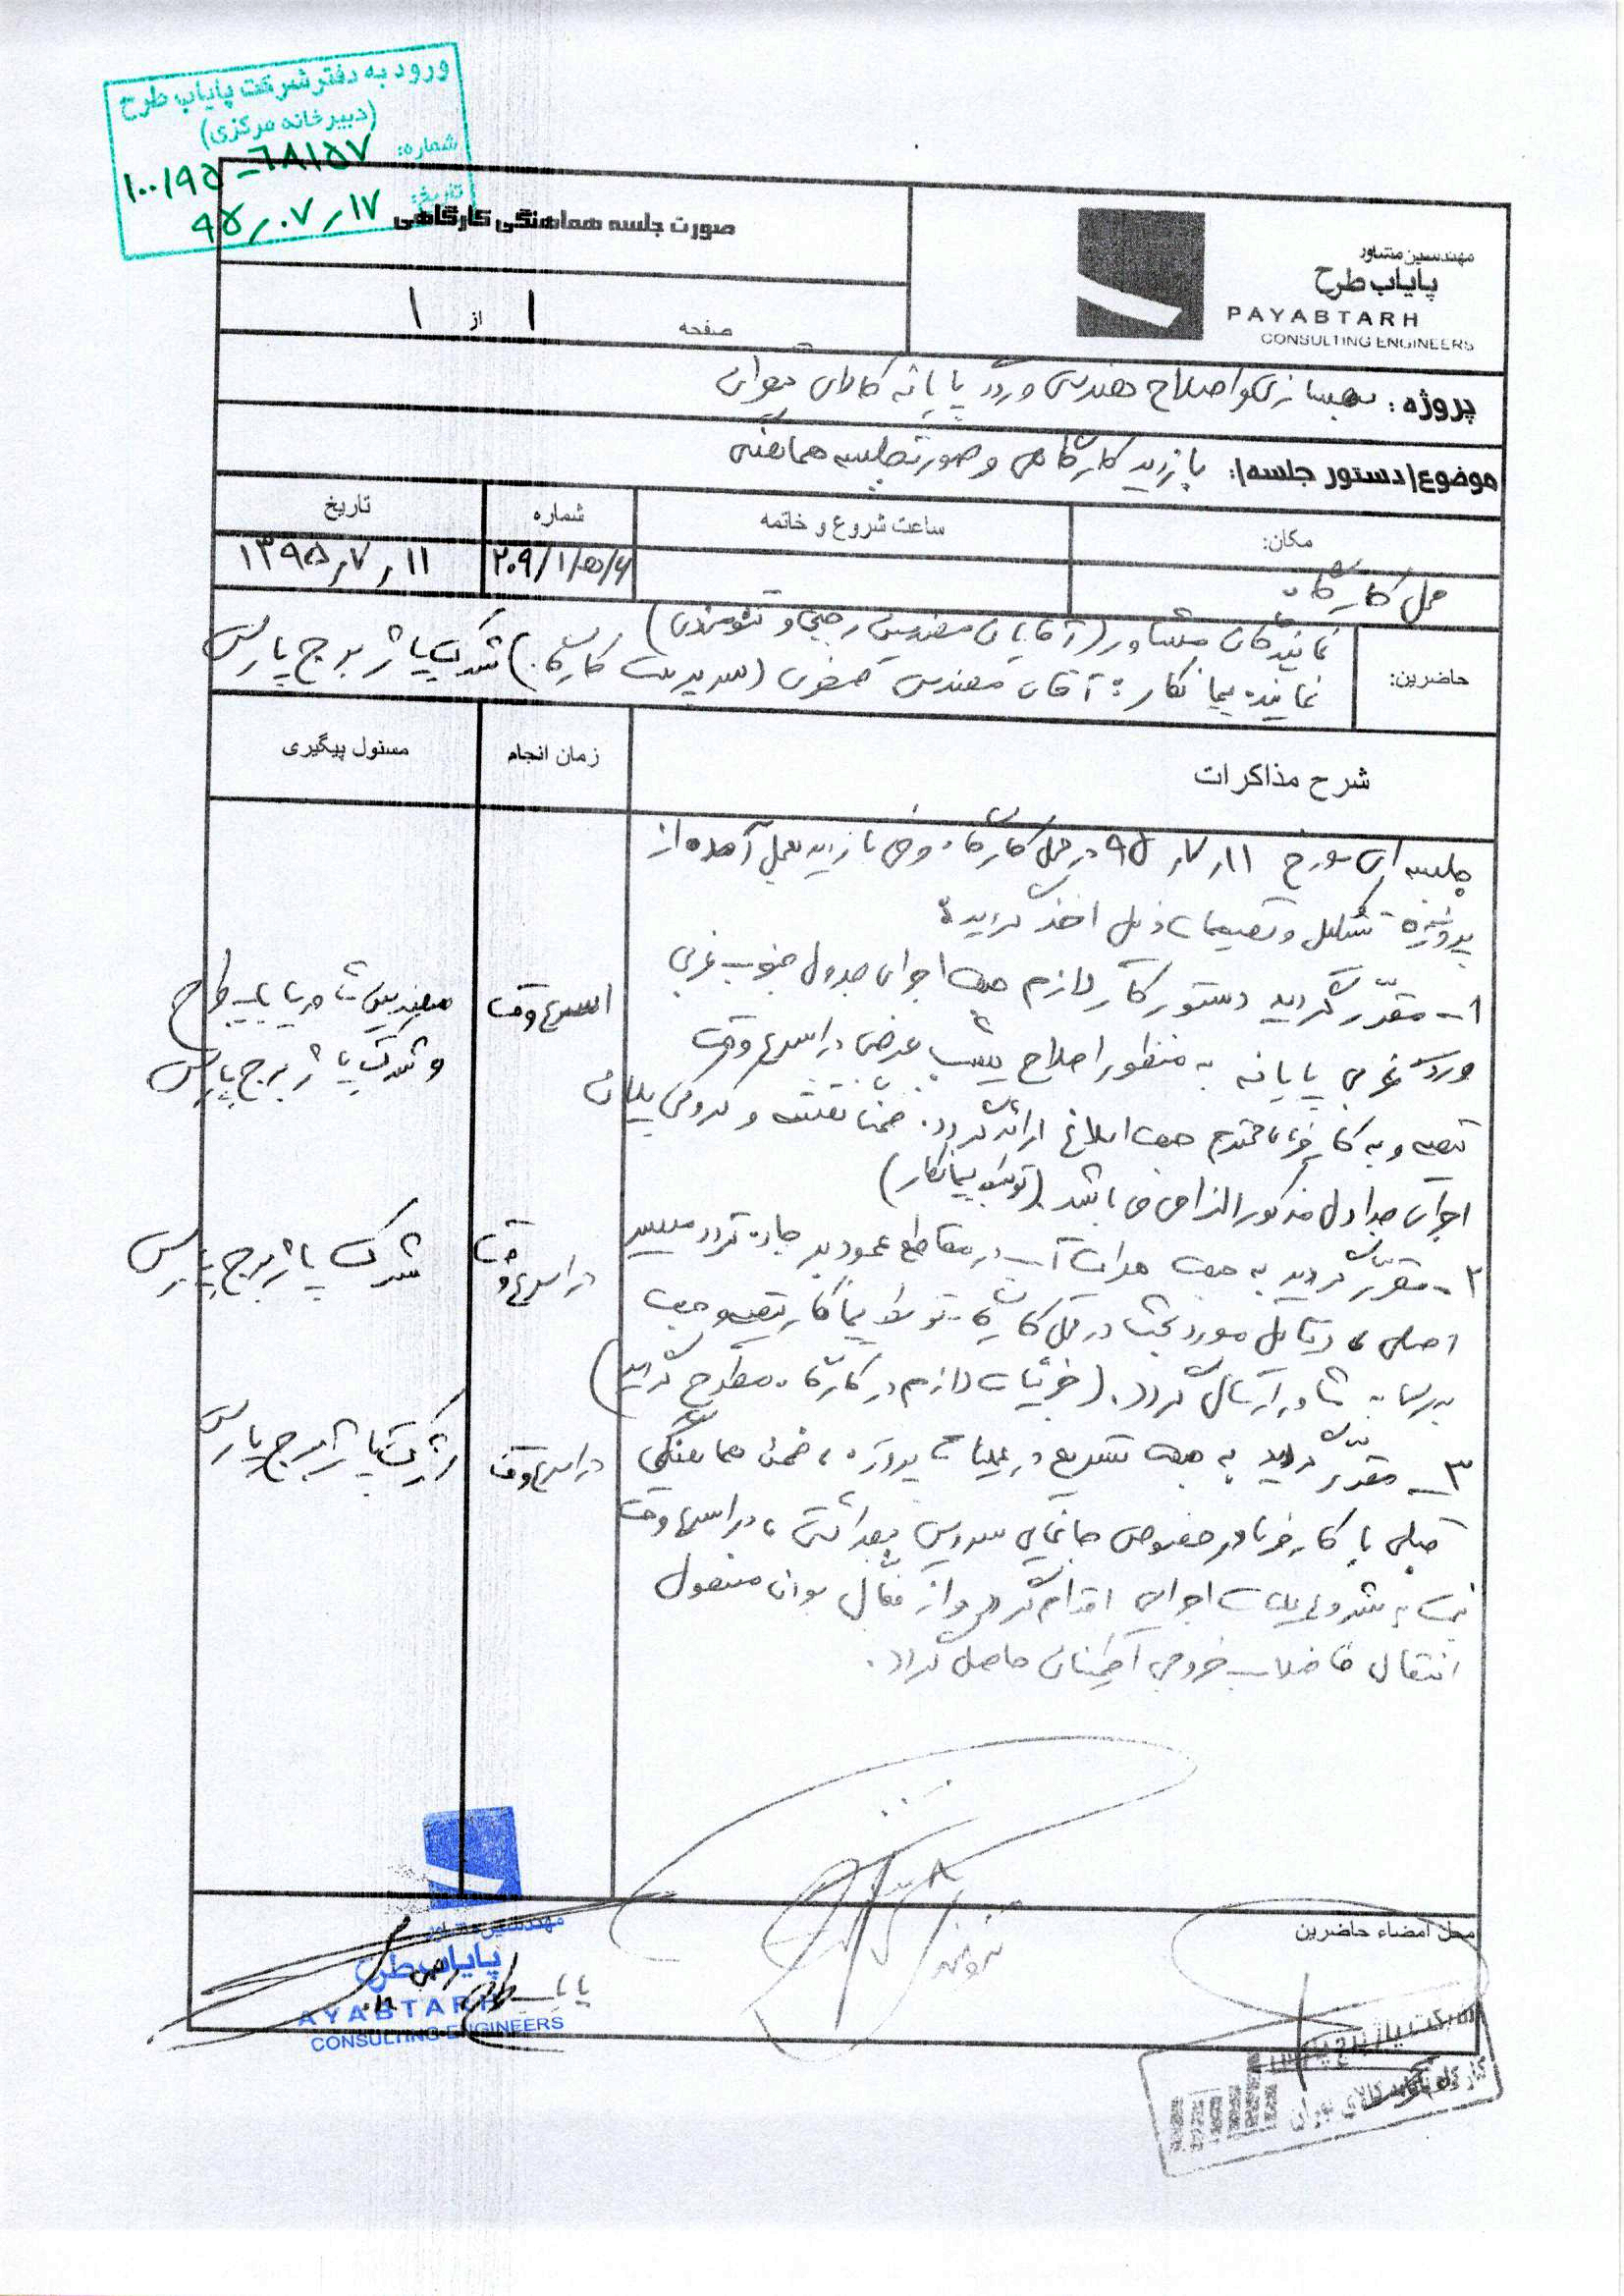 ورود به دفتر شرکت پایاب طرح
(دبیرخانه مرکزی)
شماره: ۶۸۱۵۷-۱۰۰/۹۵
تاریخ: ۹۵/۰۷/۱۷
صورت جلسه هماهنگی کارگاهی
صفحه ۱ از ۱
مهندسین مشاور
پایاب طرح
PAYABTARH
CONSULTING ENGINEERS
پروژه: بهسازی و اصلاح هندسی ورودی پایانه کالای تهران
موضوع/دستور جلسه/: بازدید کارگاهی و صورتجلسه هماهنگی
مکان: ساعت شروع و خاتمه شماره تاریخ
محل کارگاه ۱۳۹۵/۷/۱۱
حاضرین: نمایندگان مشاور (آقایان مهندسین رجبی و تنومندی)
نماینده پیمانکار: آقای مهندس صفوی (سرپرست کارگاه) شرکت پاژ برج پارس
شرح مذاکرات زمان انجام مسئول پیگیری
جلسه ای مورخ ۹۵/۷/۱۱ در محل کارگاه و طی بازدید بعمل آمده از
پروژه تشکیل و تصمیمات ذیل اخذ گردید:
۱- مقرّر گردید دستور کار لازم جهت اجرای جدول جنوب غربی
ورودی غربی پایانه به منظور اصلاح شیب عرضی در اسرع وقت
تهیه و به کارفرمای محترم جهت ابلاغ ارائه گردد. ضمناً نقشه و کروکی
اجرای جداول مذکور الزامی می باشد. (توسط پیمانکار)
اسرع وقت
مهندسین مشاور پایاب طرح
و شرکت پاژ برج پارس
۲- مقرّر گردید به جهت هدایت آب در مقاطع عمود بر جاده تردد مسیر
اصلی، دیتایل مورد بحث در محل کارگاه توسط پیمانکار تهیه و جهت
بررسی به مشاور ارسال گردد. (جزئیات لازم در کارگاه مطرح گردید)
در اسرع وقت
شرکت پاژ برج پارس
۳- مقرّر گردید به جهت تسریع در عملیات پروژه، ضمن هماهنگی
قبلی با کارفرما در خصوص جانمایی سرویس بهداشتی، در اسرع وقت
نسبت به شروع عملیات اجرایی اقدام گردد و از فعال بودن
انتقال فاضلاب خروجی اطمینان حاصل گردد.
در اسرع وقت
شرکت پاژ برج پارس
محل امضاء حاضرین
تنومندی
مهندسین مشاور
پایاب طرح
AYABTARH
CONSULTING ENGINEERS
پایاب طرح
شرکت پاژ برج پارس
کارگاه پایانه کالای تهران